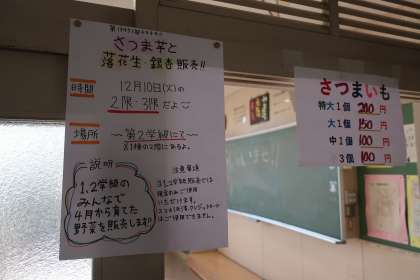 さつま芋と
落花生・銀杏販売!!
時間
12月10日(火)の
2限・3限だよ
場所
～第2学級にて～
※1棟の2階にあるよ。
説明
1.2学級の
みんなで
4月から育てた
野菜を販売します!
注意事項
ご使用できません。
さつまいも
特大1個 200円
大1個 150円
中1個 100円
3個 100円